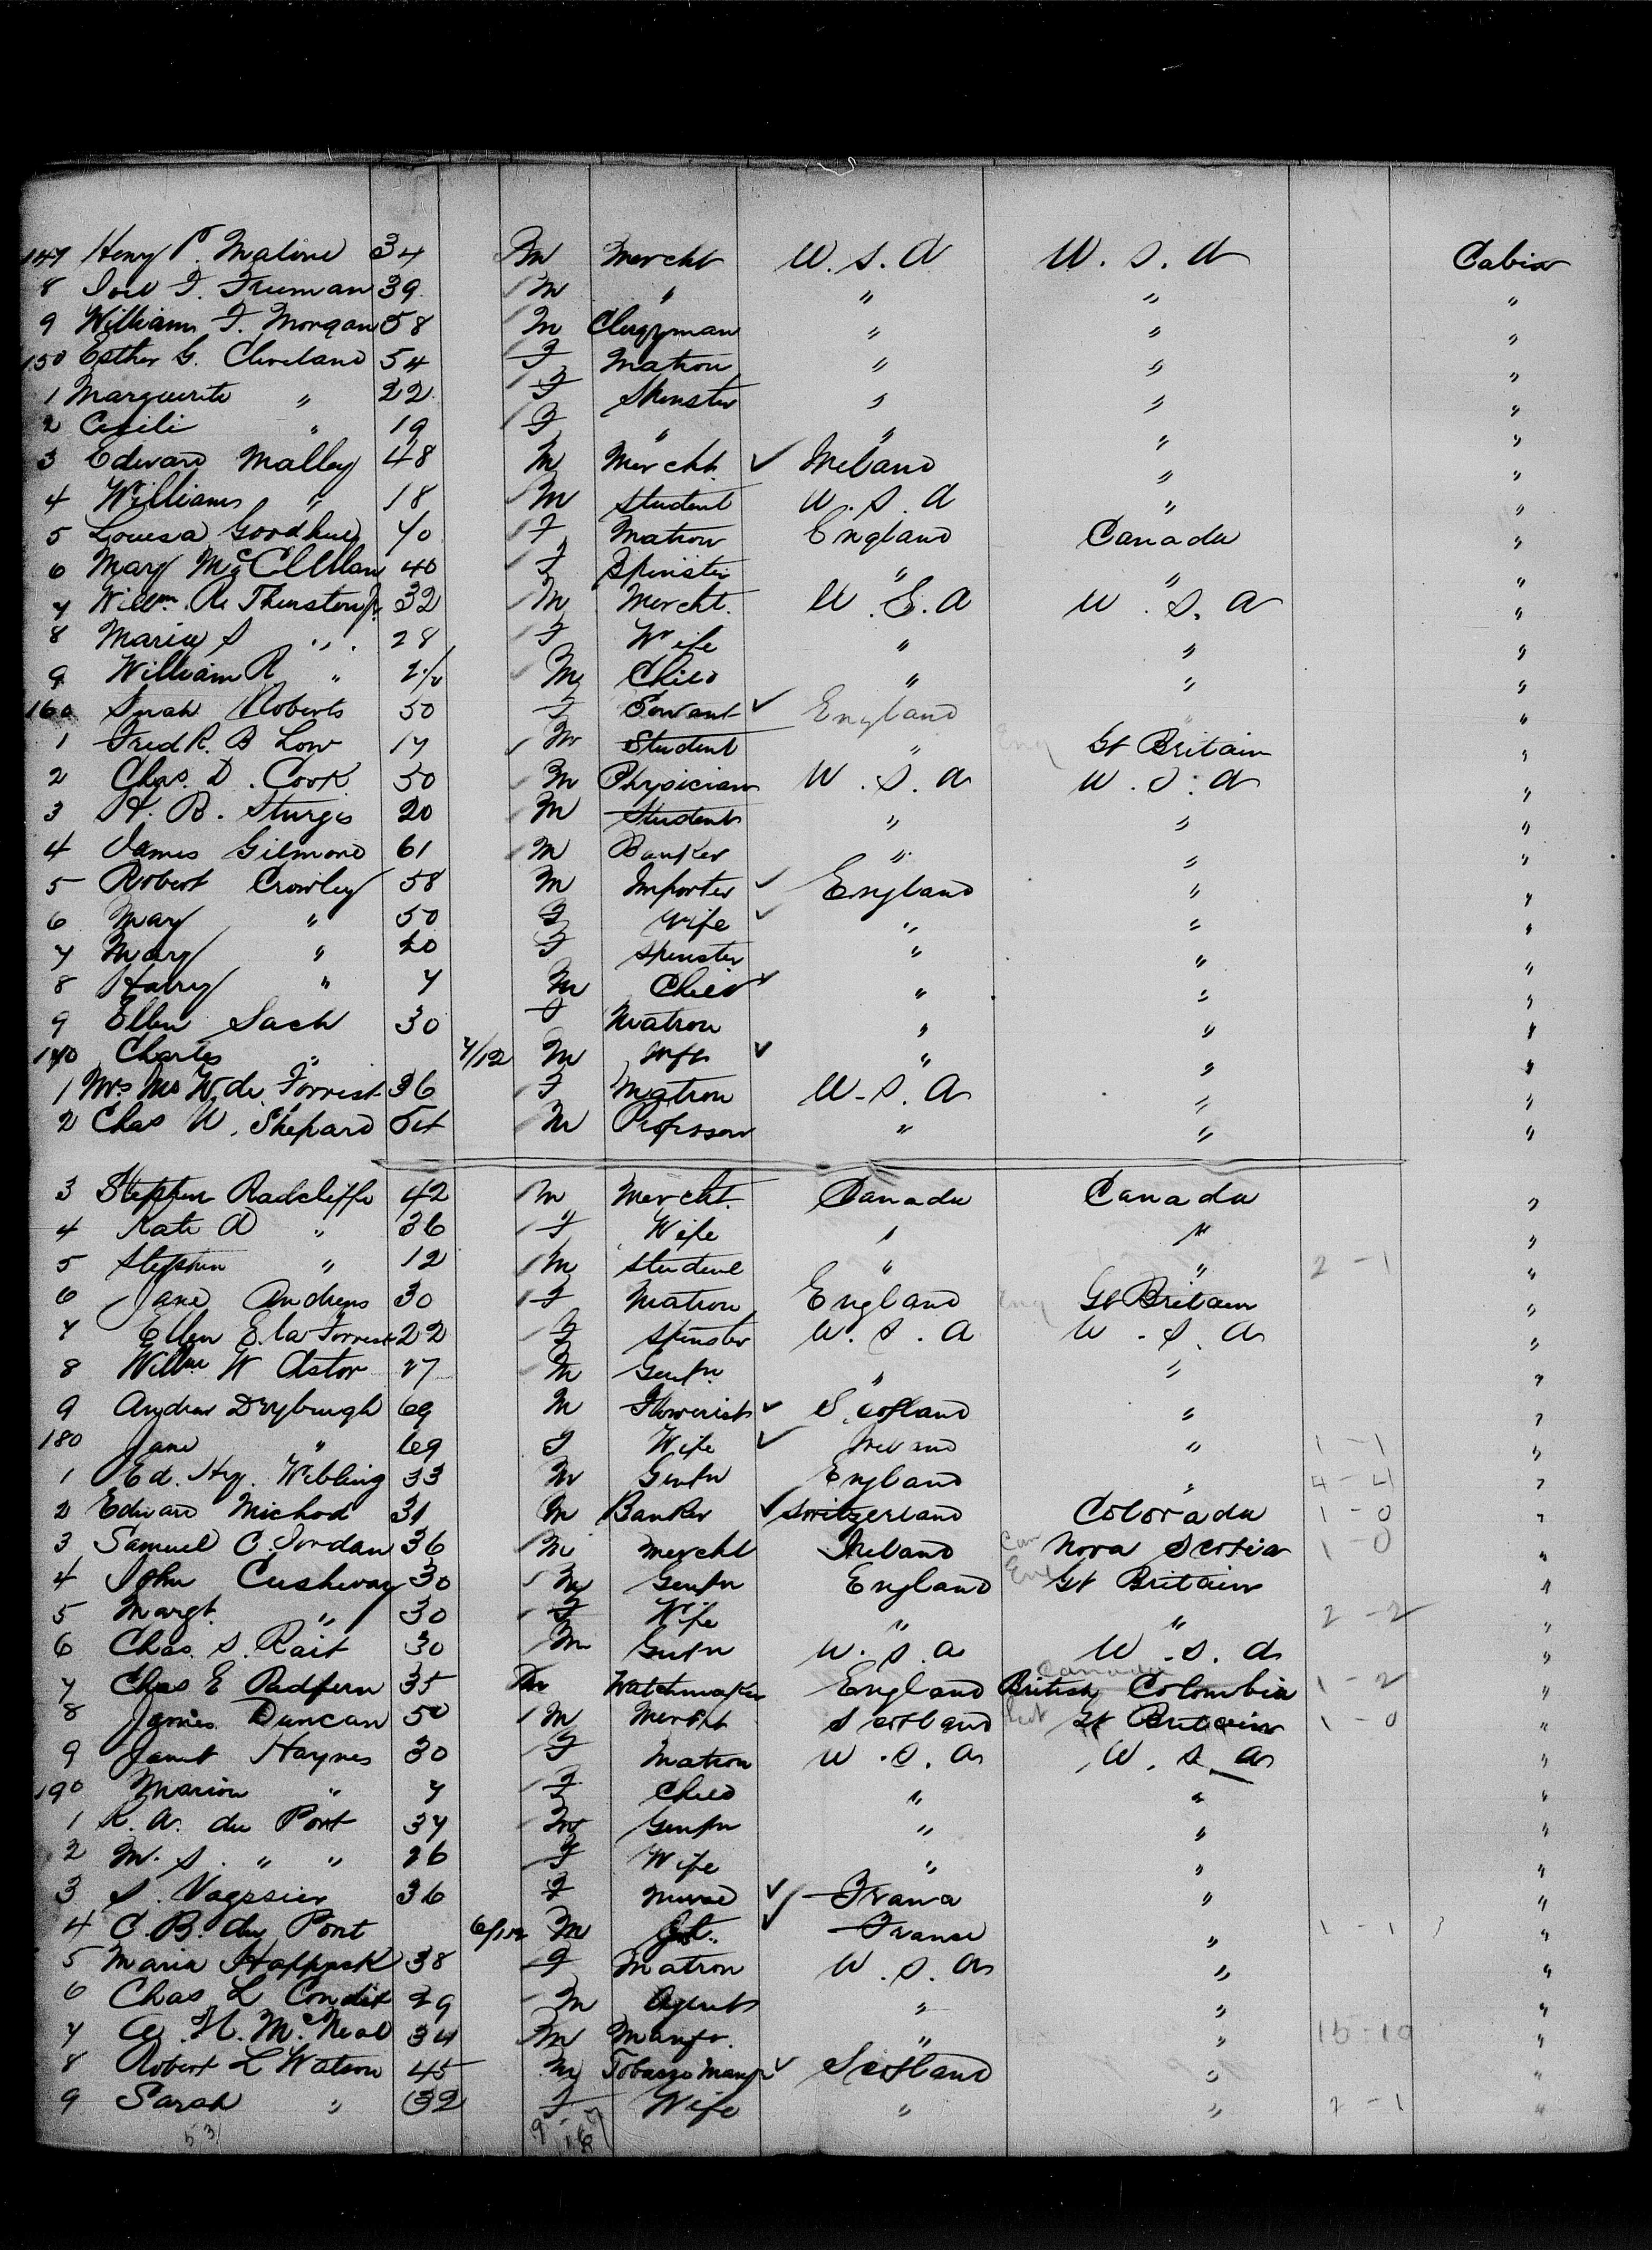 147 Henry P. Maline 34 M Mercht U.S.A U.S.A Cabin
8 Joel F. Freeman 39 M " " " "
9 William F. Morgan 58 M Clergyman " " "
150 Esther G. Cleveland 54 F Matron " " "
1 Marguerite " 22 F Spinster " " "
2 Cecili " 19 F " " " "
3 Edward Malley 48 M Mercht. ✓ Ireland " "
4 William " 18 M Student U.S.A " "
5 Louisa Goodhue 40 F Matron England Canada "
6 Mary McClellan 40 F Spinster " " "
7 Willm. R. Thurston Jr. 32 M Mercht. U.S.A U.S.A "
8 Maria S " 28 F Wife " " "
9 William R " 2 1/2 M Child " " "
160 Sarah Roberts 50 F Servant ✓ England " "
1 Fred R. B Low 17 M Student " Eng Gt Britain "
2 Chas. D. Cook 50 M Physician U.S.A U.S.A "
3 H. B. Sturgis 20 M Student " " "
4 James Gilmore 61 M Banker " " "
5 Robert Crowley 58 M Importer ✓ England " "
6 Mary " 50 F Wife ✓ " " "
7 Mary " 20 F Spinster " " "
8 Harry " 7 M Child ✓ " " "
9 Ellen Sach 30 F Matron " " "
170 Charles " 7/12 M Inft ✓ " " "
1 Mrs. de Forrest 36 F Matron U.S.A " "
2 Chas U. Shepard 54 M Professor " " "
3 Stephen Radcliffe 42 M Mercht. Canada Canada "
4 Kate A " 36 F Wife " " "
5 Stephen " 12 M Student " " 2 - 1 "
6 Jane Andrews 30 F Matron England Eng Gt Britain "
7 Ellen E. la Forrest 22 F Spinster U.S.A U.S.A "
8 Willm W Astor 27 M Gentn. " " "
9 Andrew Dryburgh 69 M Flowerist ✓ Scotland " "
180 Jane " 69 F Wife ✓ Ireland " 1 - 1 "
1 Ed. Hy. Webling 33 M Gentn England " 4 - 4 "
2 Edward Michod 31 M Banker ✓ Switzerland Colorada 1 - 0 "
3 Samuel C. Jordan 36 M Mercht Ireland Can Nova Scotia 1 - 0 "
4 John Cushway 30 M Gentn England Eng Gt Britain "
5 Margt. " 30 F Wife " " 2 - 2 "
6 Chas. S. Rait 30 M Gentn U.S.A U.S.A "
7 Chas E Redfern 35 M Watchmaker England Canada British Colombia 1 - 2 "
8 James Duncan 50 M Mercht Scotland Sct Gt Britain 1 - 0 "
9 Janet Haynes 30 F Matron U.S.A U.S.A "
190 Marion " 7 F Child " " "
1 R. A. du Pont 34 M Gentn " " "
2 M. S. " " 26 F Wife " " "
3 S. 36 F Nurse ✓ France " "
4 C. B. du Pont 6/12 M ✓ France " 1 - 1 "
5 Maria 38 F Matron U.S.A " "
6 Chas L Condit 29 M Agent " " "
7 H. McNeal 34 M Manfr. " " 15-10 "
8 Robert L Watson 45 M Tobacco Manfr ✓ Scotland " "
9 Sarah " 32 F Wife " " 2 - 1 "
53